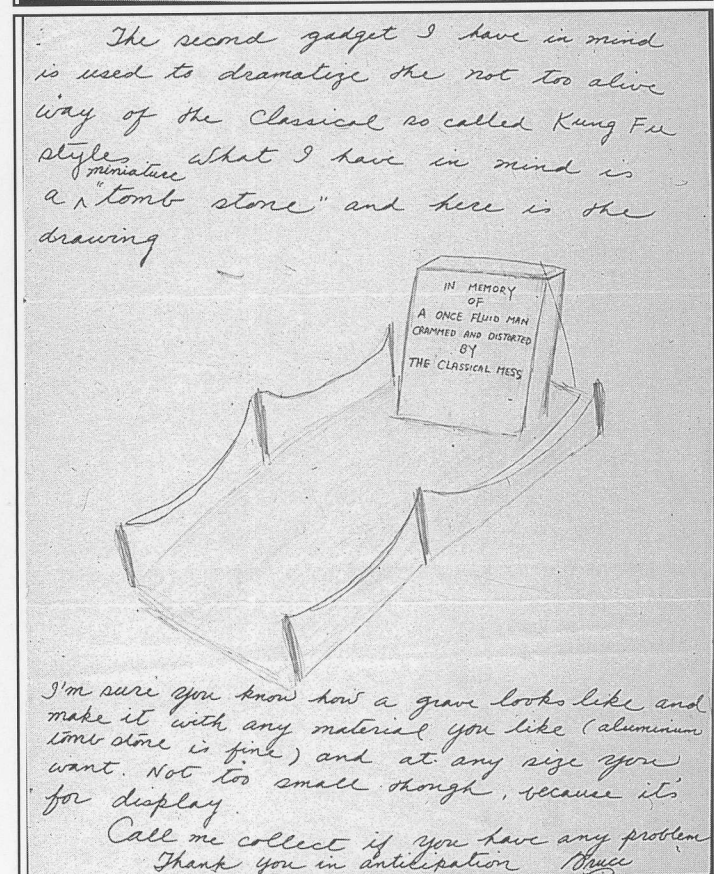 The second gadget I have in mind
is used to dramatize the not too alive
way of the classical so called Kung Fu
styles. What I have in mind is
miniature
a ^ "tomb stone" and here is the
drawing
IN MEMORY
OF
A ONCE FLUID MAN
CRAMMED AND DISTORTED
BY
THE CLASSICAL MESS
I'm sure you know how a grave looks like and
make it with any material you like (aluminum
tomb stone is fine) and at any size you
want. Not too small though, because it's
for display.
Call me collect if you have any problem
Thank you in anticipation Bruce